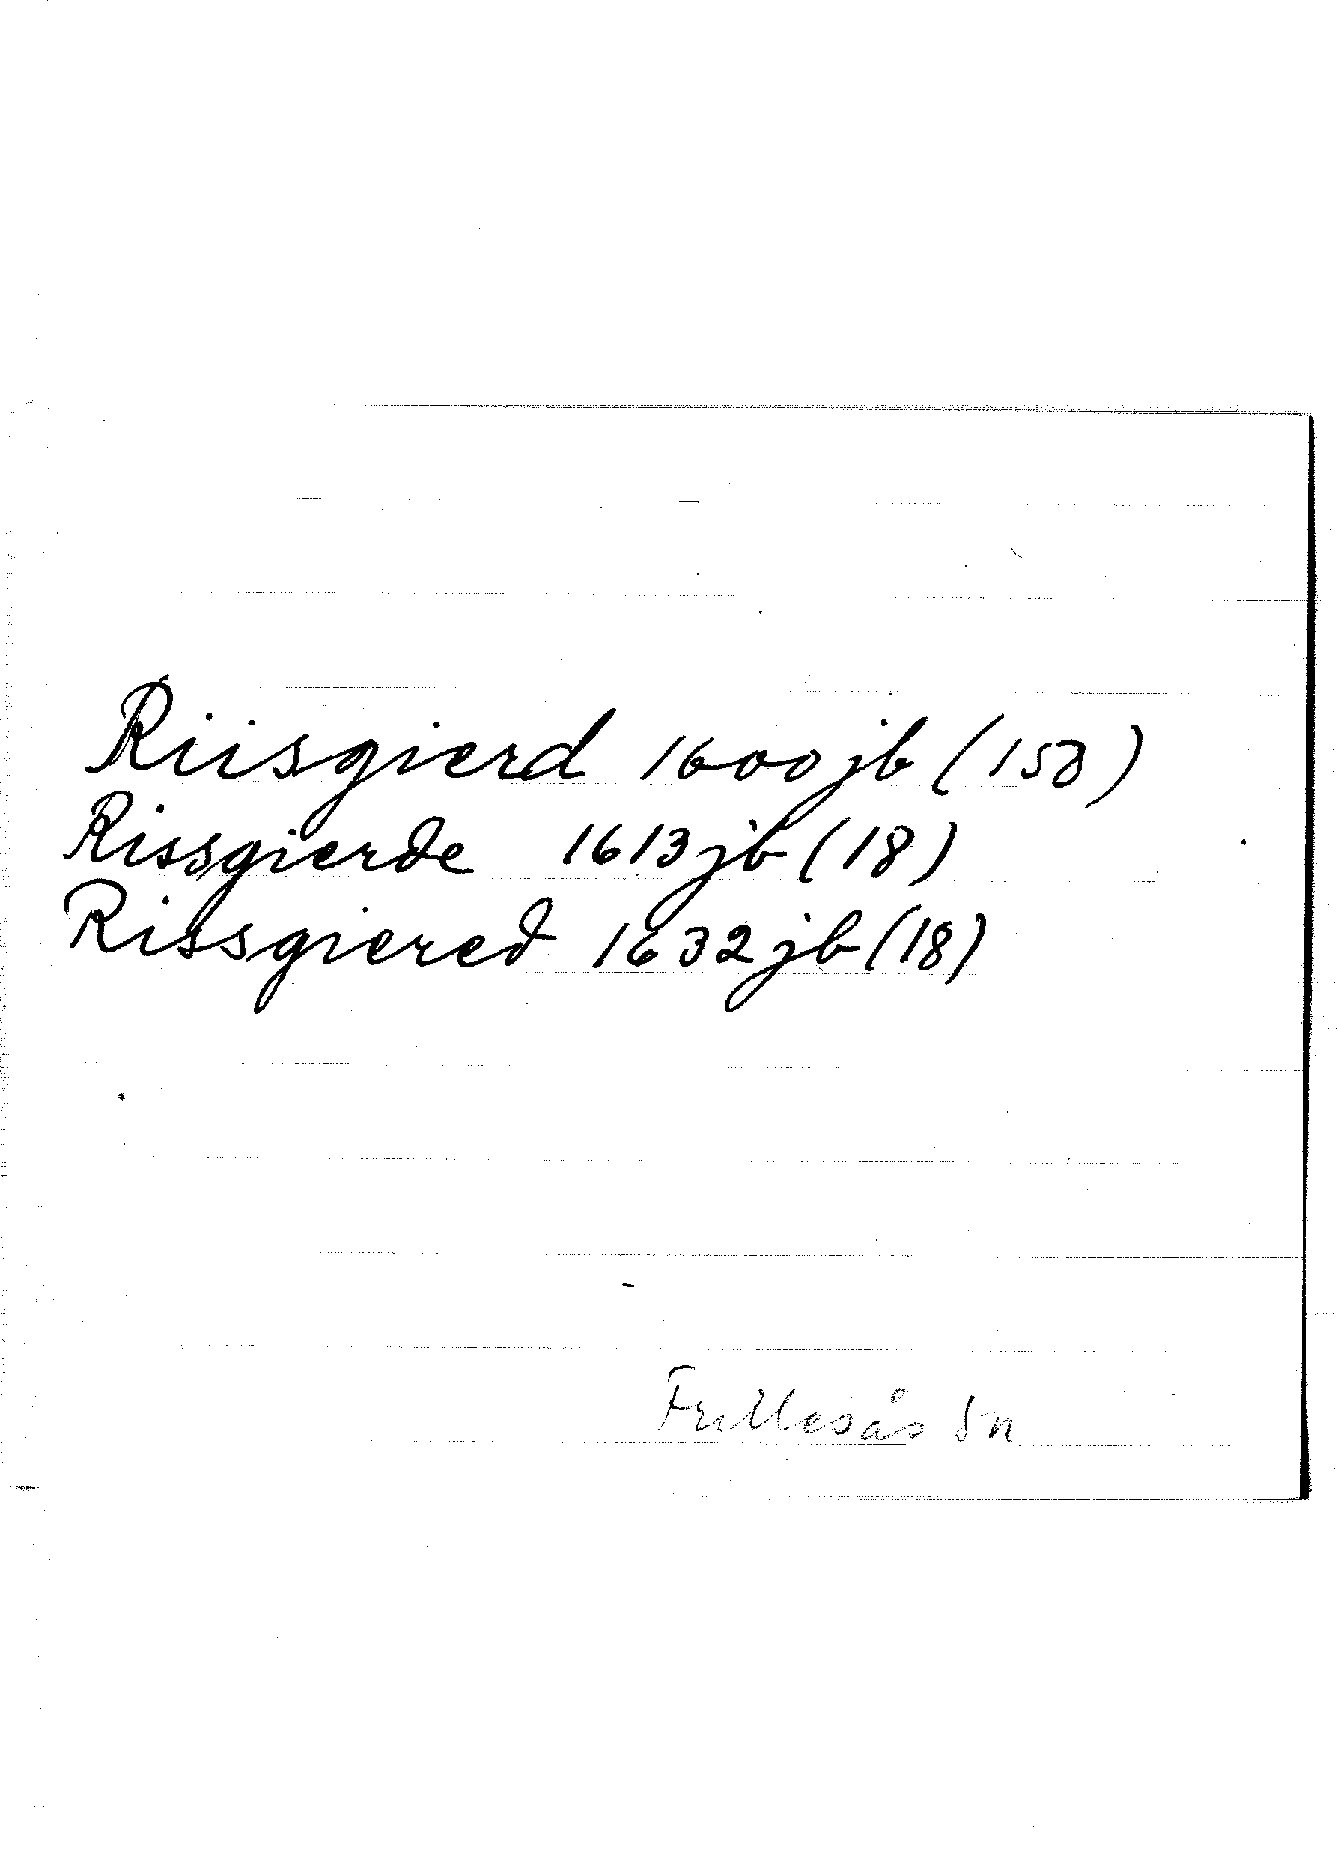 Riisgierd 1600 jb (150)
Rissgierde 1613 jb (18)
Rissgiered 1632 jb (18)
Frillesås Sn